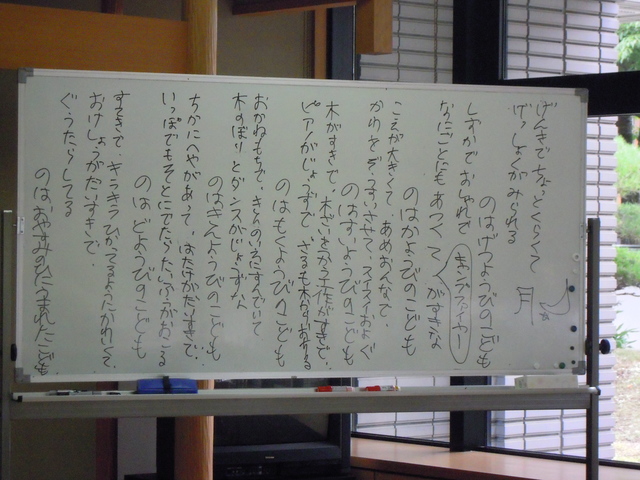 げんきでちょっとくらくて
げっしょくがみられる
のはげつようびのこども
しずかでおしゃれで
なにごとにもあつくて
がすきな
キャンプファイヤー
のはかようびのこども
こえが大きくて あめおんなで、
かわをぎ スイスイおよぐ
のはすいようびのこども
木がすきで、木ざいをかう工作がすきで、
ピアノがじょうずで さるも木から
のはもくようびのこども
おかねもちで、きんのいろにすんでいて
木のぼりとダンスがじょうずな
のはきんようびのこども
ちかにへやがあって、はたけがだいすきで、
いっぽでもそとにでたらたいふうがおこる
のは どようびのこども
すてきで、きらきらひかってるようにかわいくて、
おけしょうがだいすきで、
ぐうたらしてる
のは、おやすみのひにうまれたこども
月